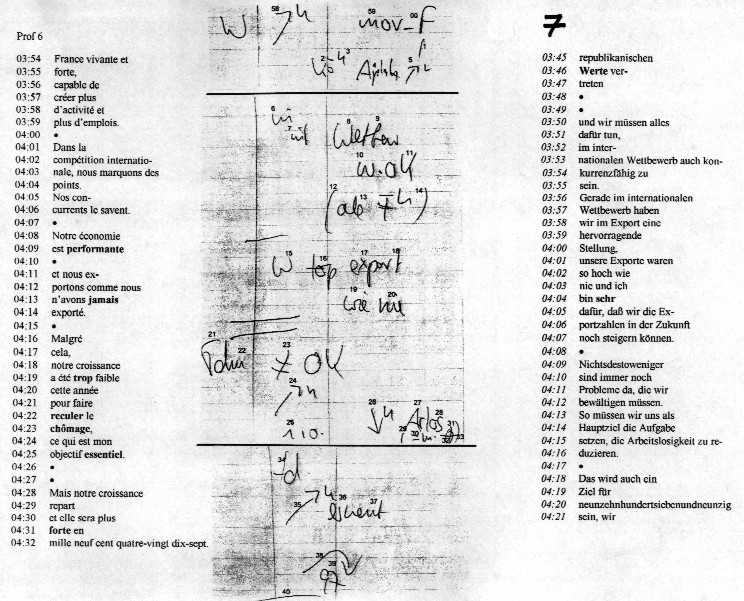 Prof 6
03:54 France vivante et
03:55 forte,
03:56 capable de
03:57 créer plus
03:58 d'activité et
03:59 plus d'emplois.
04:00 •
04:01 Dans la
04:02 compétition internatio-
04:03 nale, nous marquons des
04:04 points.
04:05 Nos con-
04:06 currents le savent.
04:07 •
04:08 Notre économie
04:09 est performante
04:10 •
04:11 et nous ex-
04:12 portons comme nous
04:13 n'avons jamais
04:14 exporté.
04:15 •
04:16 Malgré
04:17 cela,
04:18 notre croissance
04:19 a été trop faible
04:20 cette année
04:21 pour faire
04:22 reculer le
04:23 chômage,
04:24 ce qui est mon
04:25 objectif essentiel.
04:26 •
04:27 •
04:28 Mais notre croissance
04:29 repart
04:30 et elle sera plus
04:31 forte en
04:32 mille neuf cent quatre-vingt dix-sept.
W mov_F
Wettbew
W. OK
W top export
wie nie
≠ OK
Arlos
97
7
03:45 republikanischen
03:46 Werte ver-
03:47 treten
03:48 •
03:49 •
03:50 und wir müssen alles
03:51 dafür tun,
03:52 im inter-
03:53 nationalen Wettbewerb auch kon-
03:54 kurrenzfähig zu
03:55 sein.
03:56 Gerade im internationalen
03:57 Wettbewerb haben
03:58 wir im Export eine
03:59 hervorragende
04:00 Stellung,
04:01 unsere Exporte waren
04:02 so hoch wie
04:03 nie und ich
04:04 bin sehr
04:05 dafür, daß wir die Ex-
04:06 portzahlen in der Zukunft
04:07 noch steigern können.
04:08 •
04:09 Nichtsdestoweniger
04:10 sind immer noch
04:11 Probleme da, die wir
04:12 bewältigen müssen.
04:13 So müssen wir uns als
04:14 Hauptziel die Aufgabe
04:15 setzen, die Arbeitslosigkeit zu re-
04:16 duzieren.
04:17 •
04:18 Das wird auch ein
04:19 Ziel für
04:20 neunzehnhundertsiebenundneunzig
04:21 sein, wir